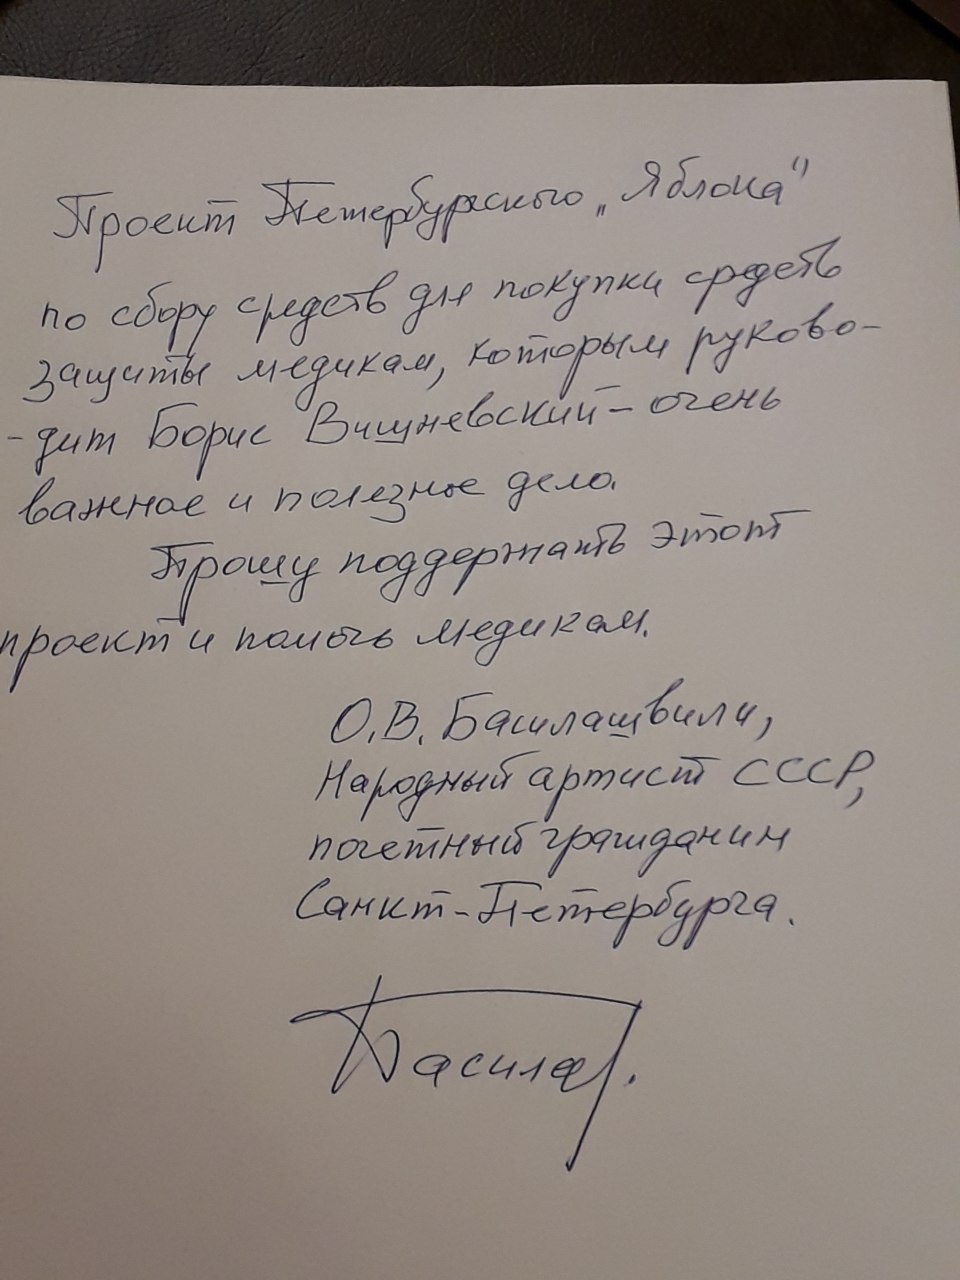 Проект Петербургского „Яблока"
по сбору средств для покупки средств
защиты медикам, которым руково-
-дит Борис Вишневский - очень
важное и полезное дело.
Прошу поддержать этот
проект и помочь медикам.
О.В. Басилашвили,
Народный артист СССР,
почетный гражданин
Санкт-Петербурга.
Басила